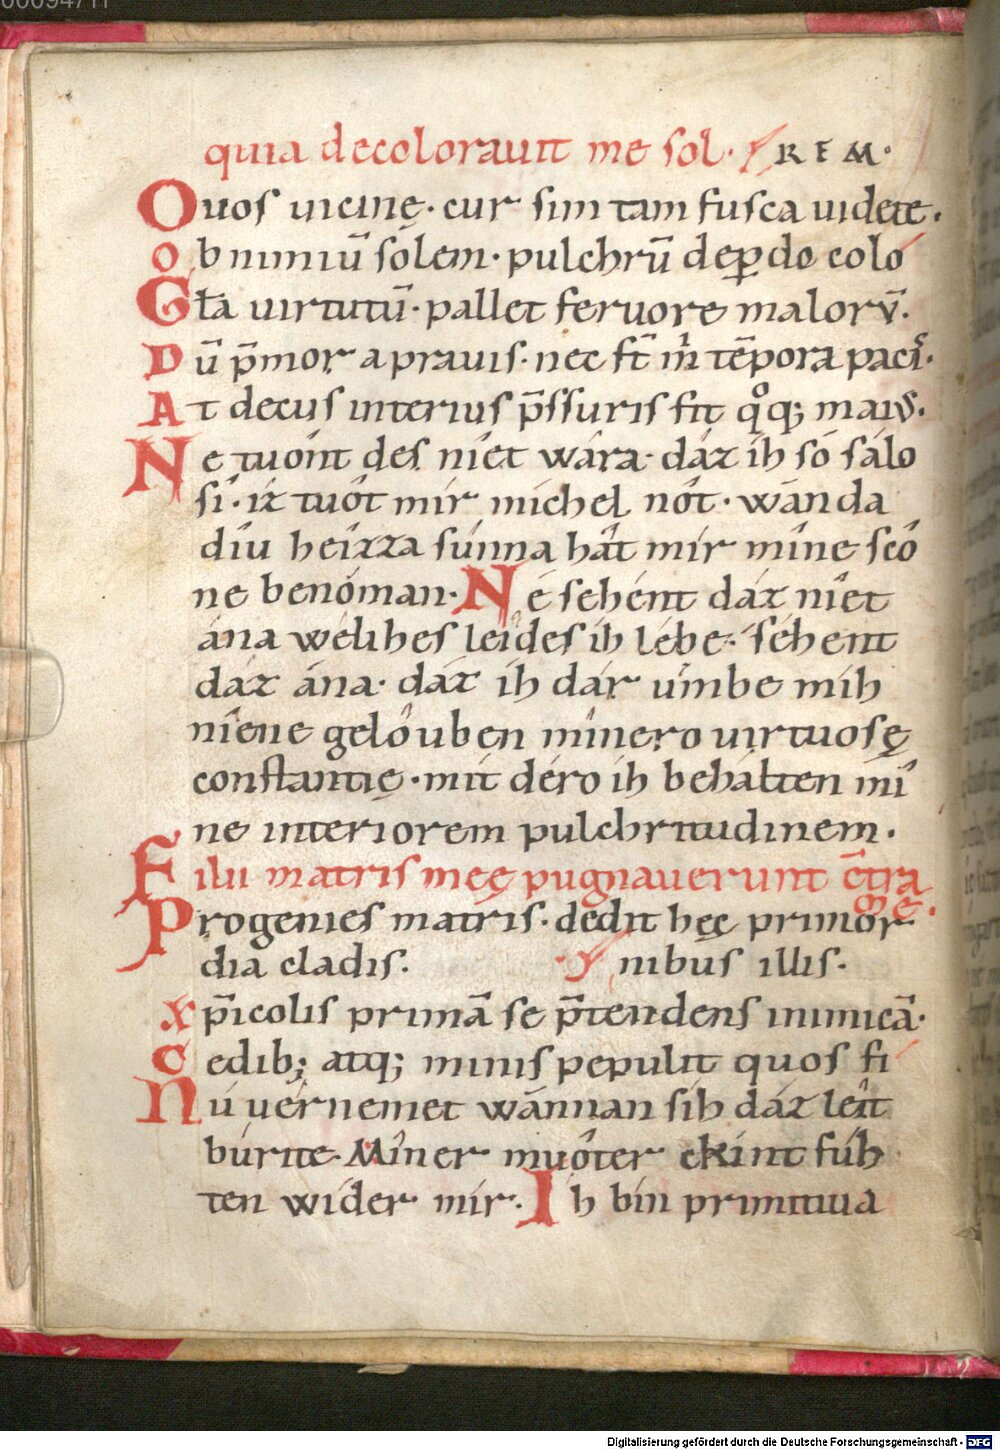 00094711
quia decolorauit me sol. REM.
Quos uicinę. cur sim tam fusca uidete.
Ob nimiū solem. pulchrū deꝑdo colo
Gła uirtutū. pallet feruore malorꝝ.
Dū p̄mor a prauis. nec st̄ m̄ tēpora paci.
At decus interius p̄ssuris fit qͦq; maiꝰ.
Ne tuoînt des nîet wára. dáz ih só sálo
sî. iz tuôt mir michel nôt. wānda
dîu heîzza súnna hât mir mîne scô
ne benóman. Né sehént dáz nîet
ána wélihes leîdes ih lébe. séhent
dáz ána. dáz ih dár úmbe mih
nîene gelôuben mînero uirtuosę
constantię. mit déro ih behálten mî
ne interiorem pulchritudinem.
Filii matris meę pugnauerunt c̄tra
me.
Progenies matris. dedit hęc primor
dia cladis. nibus illis.
Xp̄icolis primā se p̄tendens inimicā.
Cedib; atq; minis pepulit quos fi
Nú uérnemet wānnan sih dáz leît
búrite. Mîner muôter kint fúh
ten wíder mír. Ih bín primitiua
Digitalisierung gefördert durch die Deutsche Forschungsgemeinschaft - DFG